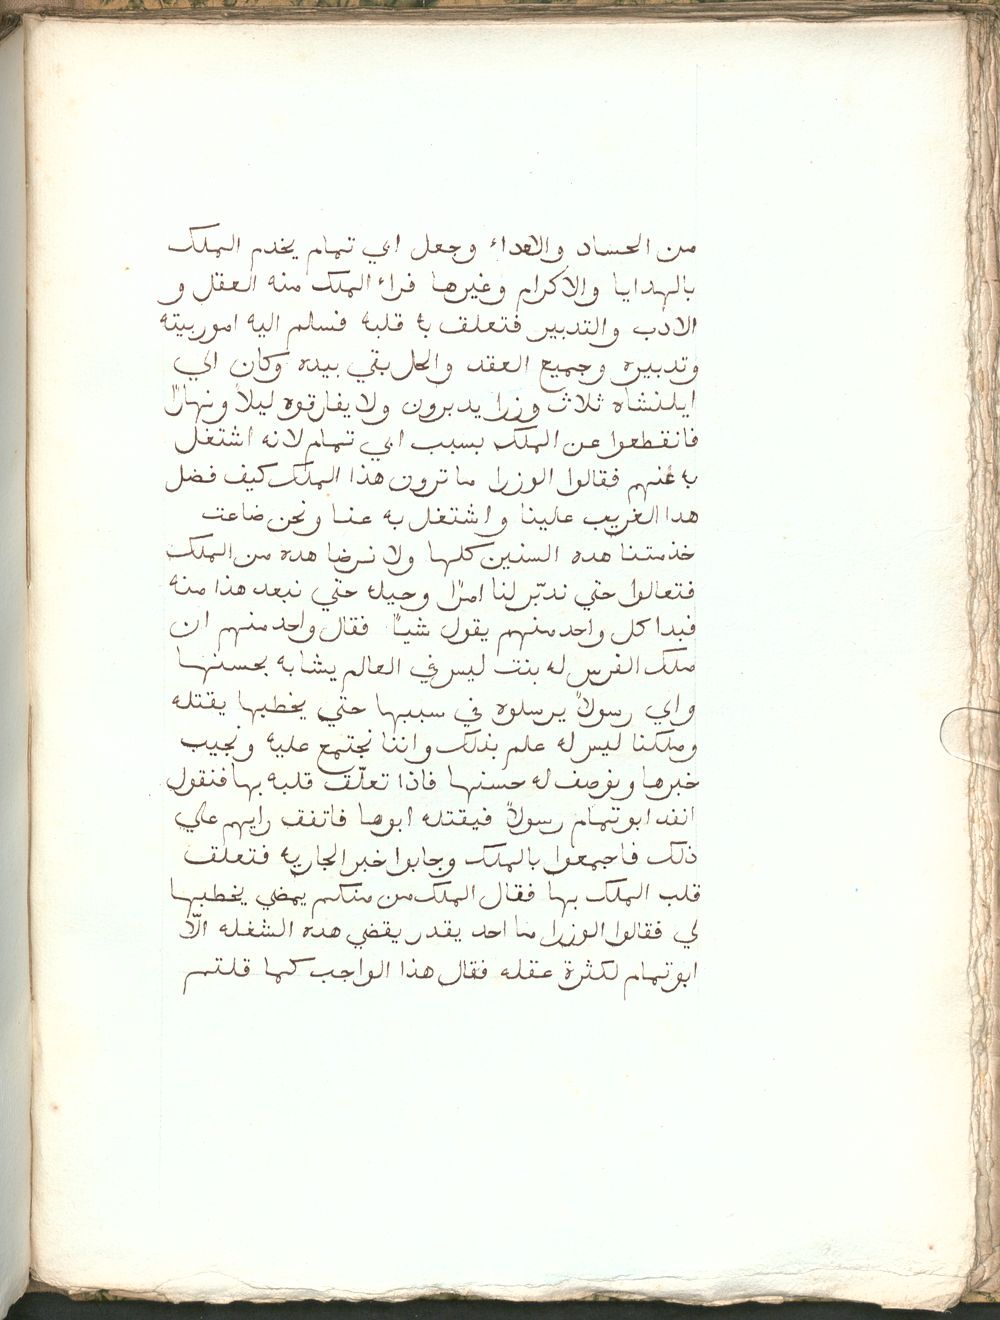 من الحساد والاعداء وجعل ابي تمام يخدم الملك
بالهدايا والاكرام وغيرها فراء الملك منه العقل و
الادب والتدبير فتعلق به قلبه فسلم اليه امور بيته
وتدبيره وجميع العقد والحل بقي بيده وكان الي
ايلنشاه ثلاث وزرا يدبرون ولا يفارقوه ليلاً ونهاراً
فانقطعوا عن الملك بسبب ابي تمام لانه اشتغل
به عنهم فقالوا الوزرا ما ترون هذا الملك كيف فضل
هدا الغريب علينا واشتغل به عنا ونحن ضاعت
خذمتنا هده السنين كلها ولا نرضا هده من الملك
فتعالوا حتي ندبّر لنا امراً وحيله حتي نبعد هذا منه
فبدا كل واحد منهم يقول شياً فقال واحد منهم ان
ملك الفرس له بنت ليس في العالم يشابه بحسنها
واي رسولاً يرسلوه في سببها حتي يخطبها يقتله
وملكنا ليس له علم بذلك واننا نجتمع عليه ونجيب
خبرها ونوصف له حسنها فاذا تعلّق قلبه بها فنقول
انفد ابو تمام رسولاً فيقتله ابوها فاتفق رايهم علي
ذلك فاجمعوا بالملك وجابوا خبر الجاريه فتعلق
قلب الملك بها فقال الملك من منكم يمضي يخطبها
لي فقالوا الوزرا ما احد يقدر يقضي هده الشغله الّا
ابو تمام لكثرة عقله فقال هذا الواجب كما قلتم